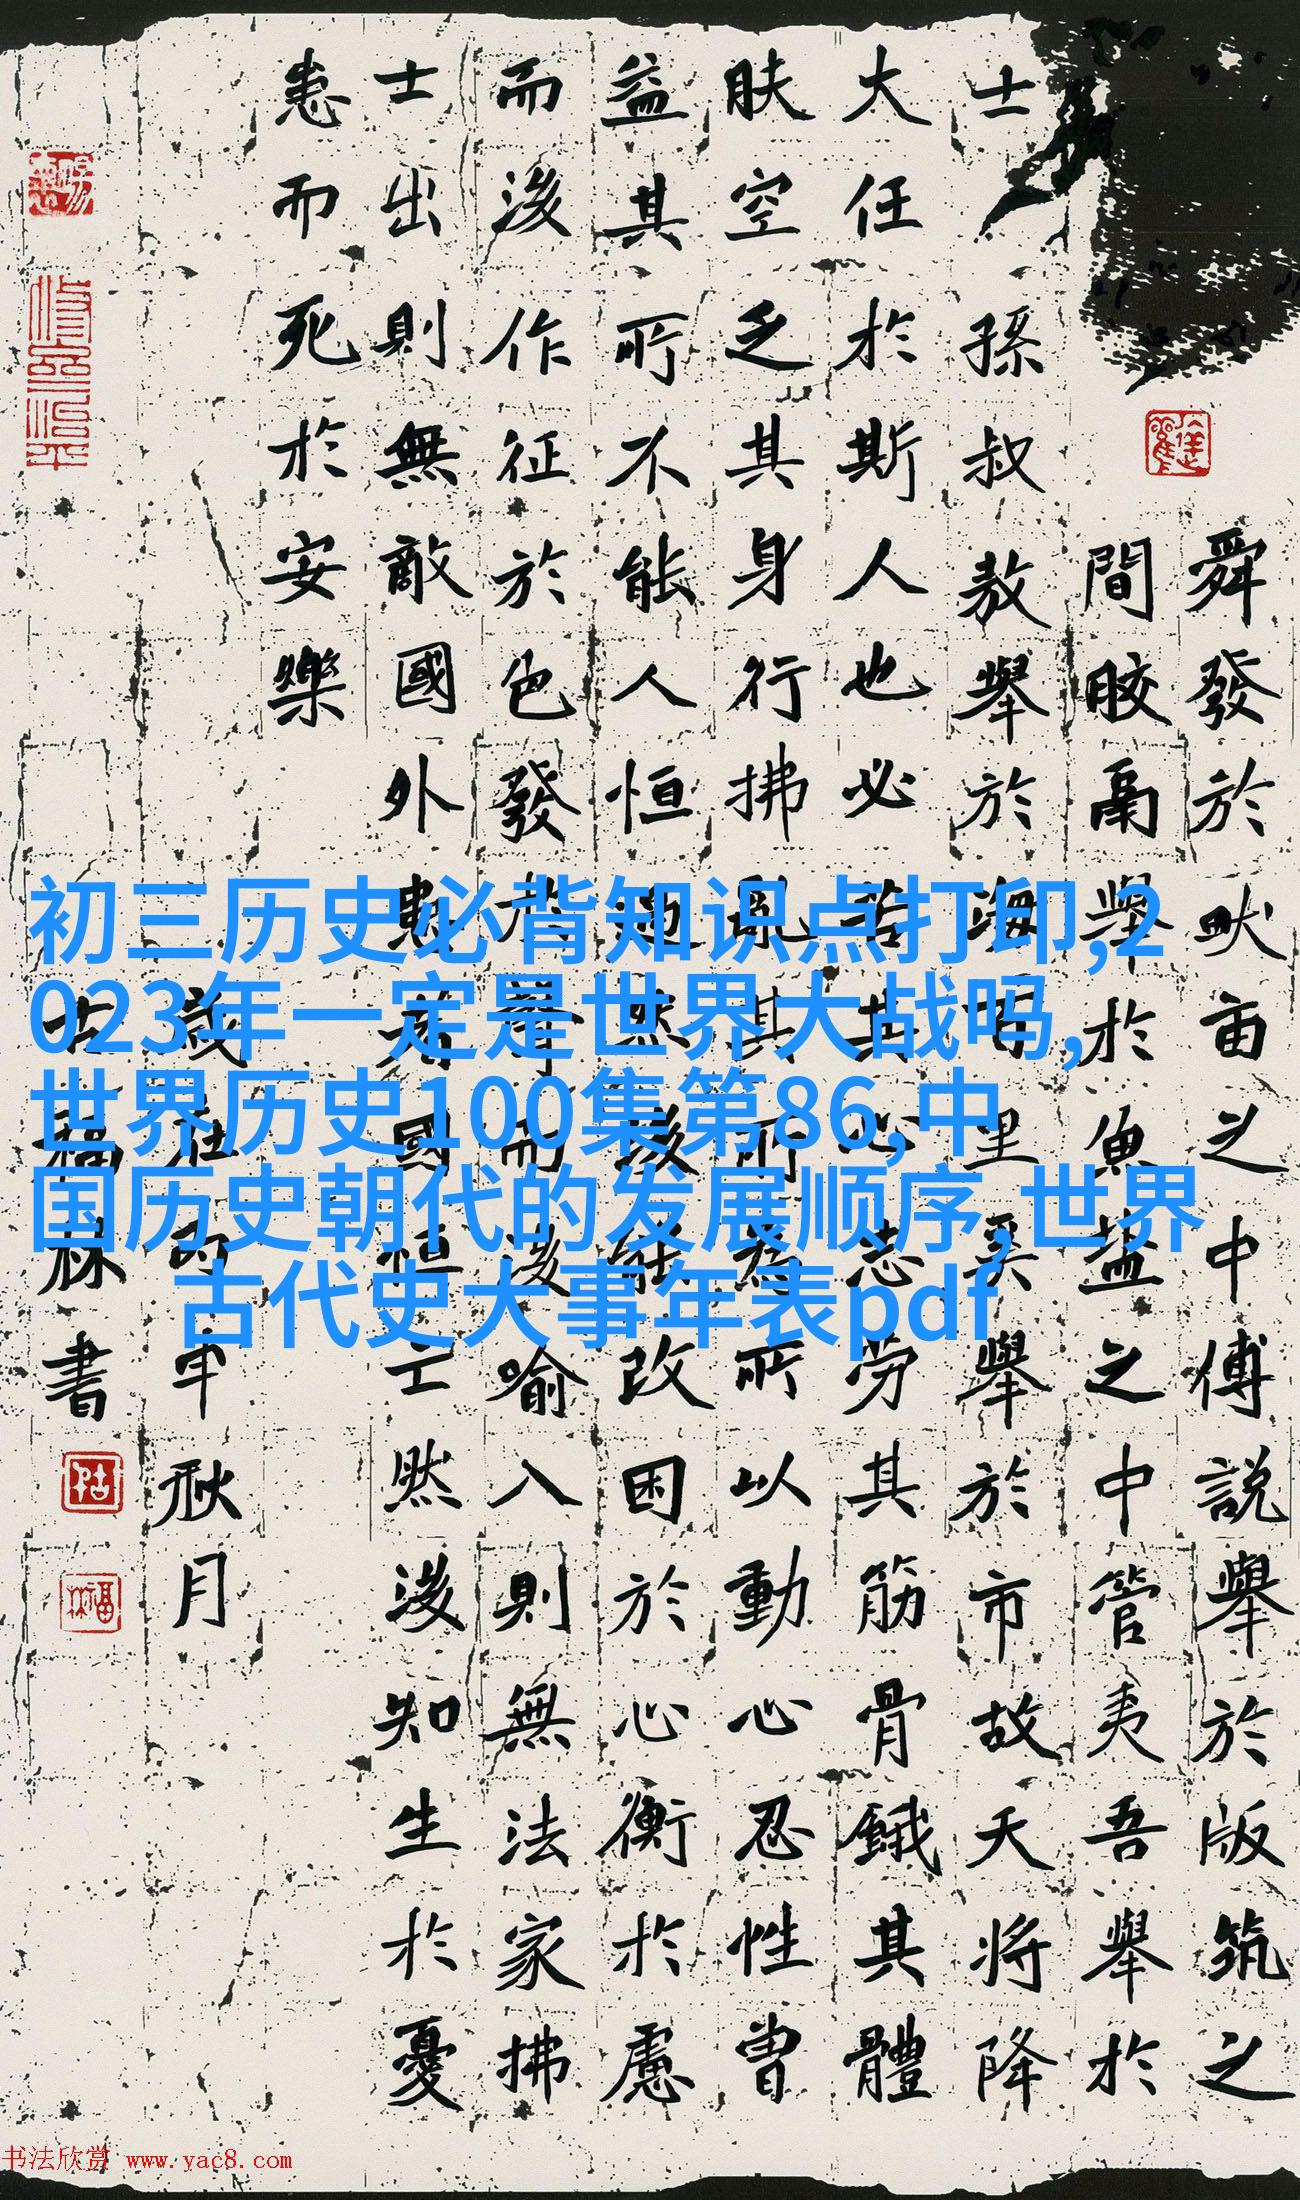 舜發於畎亩之中傅説舉於版筑之
間膠鬲舉於魚盐之中管夷吾舉於
士孫叔敖舉於海百里奚舉於市故天將降
大任於斯人也必苦其心志劳其筋骨餓其體
肤空乏其身行拂亂其所為所以動心忍性曾
益其所不能人恒過然後能改困於心衡於慮
而後作征於色發於聲而後喻入則無法家拂
士出則無敵國外患者國恒亡然後知生於憂
患而死於安樂
歲在丙申秋月
福林書
初三历史必背知识点打印,2
023年一定是世界大战吗,
世界历史100集第86,中
国历史朝代的发展顺序,世界
古代史大事年表pdf
书法欣赏 www.yac8.com